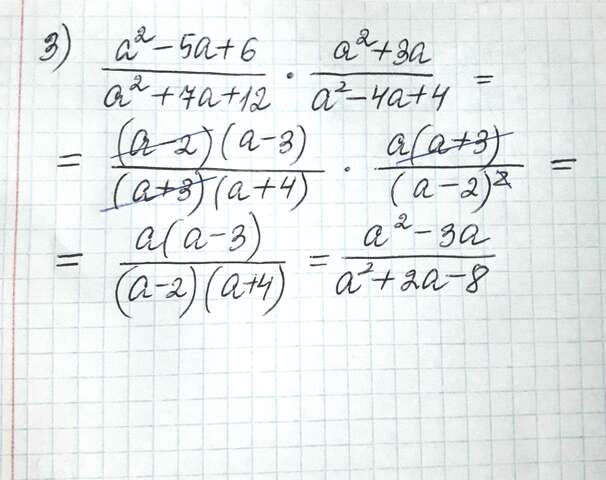 3) (a² - 5a + 6)/(a² + 7a + 12) · (a² + 3a)/(a² - 4a + 4) =
= ((a - 2)(a - 3))/((a + 3)(a + 4)) · (a(a + 3))/((a - 2)²) =
= (a(a - 3))/((a - 2)(a + 4)) = (a² - 3a)/(a² + 2a - 8)